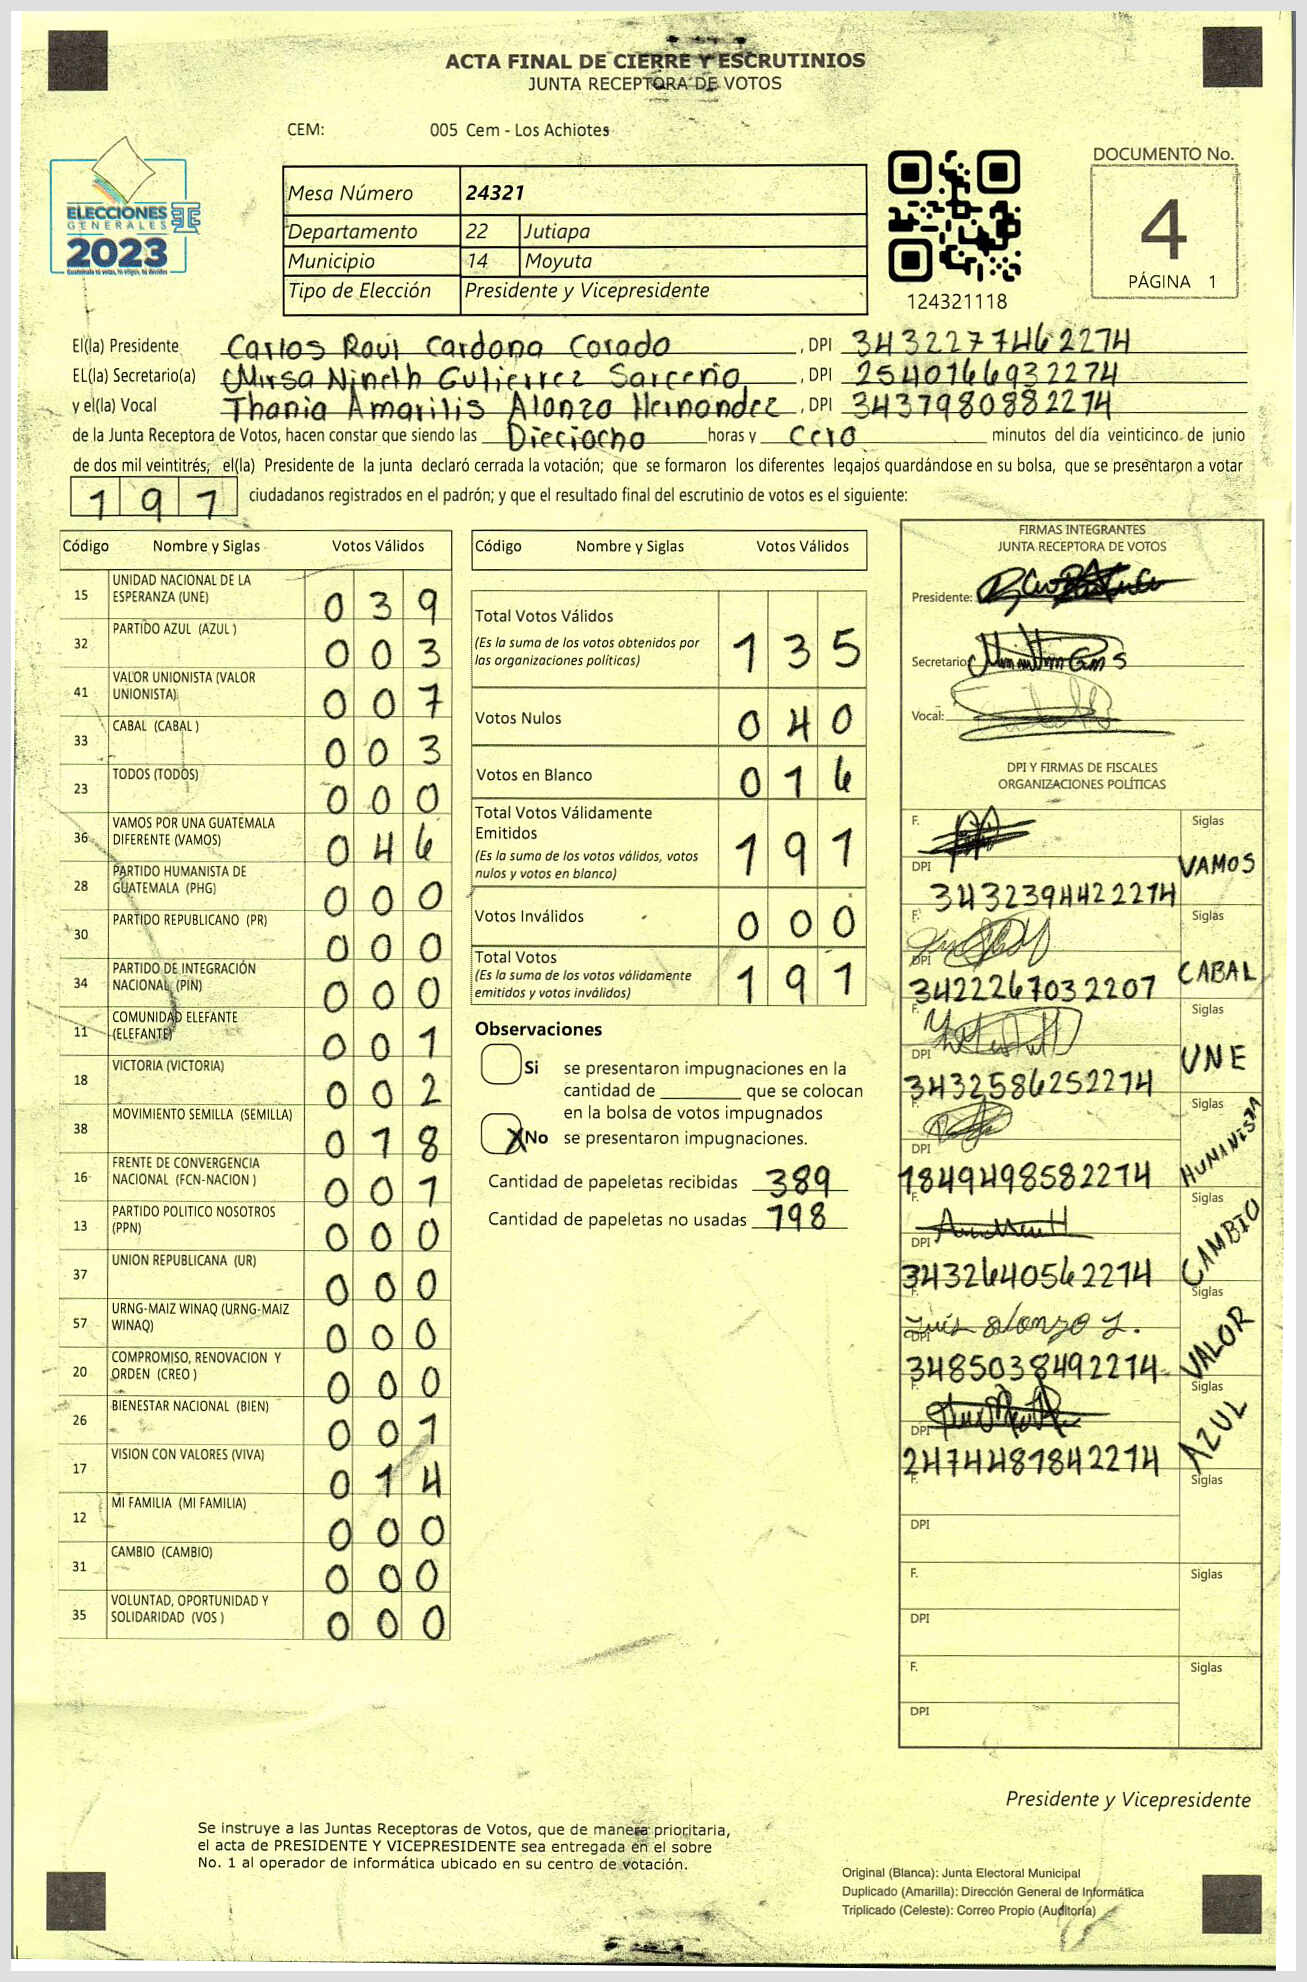 ACTA FINAL DE CIERRE Y ESCRUTINIOS
JUNTA RECEPTORA DE VOTOS
CEM: 005 Cem - Los Achiotes
ELECCIONES
GENERALES
2023
Mesa Número 24321
Departamento 22 Jutiapa
Municipio 14 Moyuta
Tipo de Elección Presidente y Vicepresidente
124321118
DOCUMENTO No.
4
PÁGINA 1
El(la) Presidente Carlos Raul Cardona Corado, DPI 3432277462274
EL(la) Secretario(a) Mirsa Nineth Gutierrez Sarceño, DPI 2540166932274
y el(la) Vocal Thania Amarilis Alonzo Hernandez, DPI 3437980882274
de la Junta Receptora de Votos, hacen constar que siendo las Dieciocho horas y cero minutos del día veinticinco de junio
de dos mil veintitrés, el(la) Presidente de la junta declaró cerrada la votación; que se formaron los diferentes legajos quardándose en su bolsa, que se presentaron a votar
191 ciudadanos registrados en el padrón; y que el resultado final del escrutinio de votos es el siguiente:
Código Nombre y Siglas Votos Válidos
15 UNIDAD NACIONAL DE LA ESPERANZA (UNE) 039
32 PARTIDO AZUL (AZUL ) 003
41 VALOR UNIONISTA (VALOR UNIONISTA) 007
33 CABAL (CABAL ) 003
23 TODOS (TODOS) 000
36 VAMOS POR UNA GUATEMALA DIFERENTE (VAMOS) 046
28 PARTIDO HUMANISTA DE GUATEMALA (PHG) 000
30 PARTIDO REPUBLICANO (PR) 000
34 PARTIDO DE INTEGRACIÓN NACIONAL (PIN) 000
11 COMUNIDAD ELEFANTE (ELEFANTE) 001
18 VICTORIA (VICTORIA) 002
38 MOVIMIENTO SEMILLA (SEMILLA) 018
16 FRENTE DE CONVERGENCIA NACIONAL (FCN-NACION ) 001
13 PARTIDO POLITICO NOSOTROS (PPN) 000
37 UNION REPUBLICANA (UR) 000
57 URNG-MAIZ WINAQ (URNG-MAIZ WINAQ) 000
20 COMPROMISO, RENOVACION Y ORDEN (CREO ) 000
26 BIENESTAR NACIONAL (BIEN) 001
17 VISION CON VALORES (VIVA) 014
12 MI FAMILIA (MI FAMILIA) 000
31 CAMBIO (CAMBIO) 000
35 VOLUNTAD, OPORTUNIDAD Y SOLIDARIDAD (VOS ) 000
Código Nombre y Siglas Votos Válidos
Total Votos Válidos 135
(Es la suma de los votos obtenidos por
las organizaciones políticas)
Votos Nulos 040
Votos en Blanco 016
Total Votos Válidamente
Emitidos 191
(Es la suma de los votos válidos, votos
nulos y votos en blanco)
Votos Inválidos 000
Total Votos 191
(Es la suma de los votos válidamente
emitidos y votos inválidos)
Observaciones
Si se presentaron impugnaciones en la
cantidad de ________ que se colocan
en la bolsa de votos impugnados
X No se presentaron impugnaciones.
Cantidad de papeletas recibidas 389
Cantidad de papeletas no usadas 198
FIRMAS INTEGRANTES
JUNTA RECEPTORA DE VOTOS
Presidente:
Secretario:
Vocal:
DPI Y FIRMAS DE FISCALES
ORGANIZACIONES POLÍTICAS
F. Siglas
DPI 3432394422274 VAMOS
F. Siglas
DPI 3422267032207 CABAL
F. Siglas
DPI 3432586252274 UNE
F. Siglas
DPI 1849498582274 HUMANISTA
F. Siglas
DPI 3432640562274 CAMBIO
F. Luis Alonzo L. Siglas
DPI 3485038492274 VALOR
F. Siglas
DPI 2474481842274 AZUL
F. Siglas
DPI
F. Siglas
DPI
F. Siglas
DPI
Presidente y Vicepresidente
Se instruye a las Juntas Receptoras de Votos, que de manera prioritaria,
el acta de PRESIDENTE Y VICEPRESIDENTE sea entregada en el sobre
No. 1 al operador de informática ubicado en su centro de votación.
Original (Blanca): Junta Electoral Municipal
Duplicado (Amarilla): Dirección General de Informática
Triplicado (Celeste): Correo Propio (Auditoría)